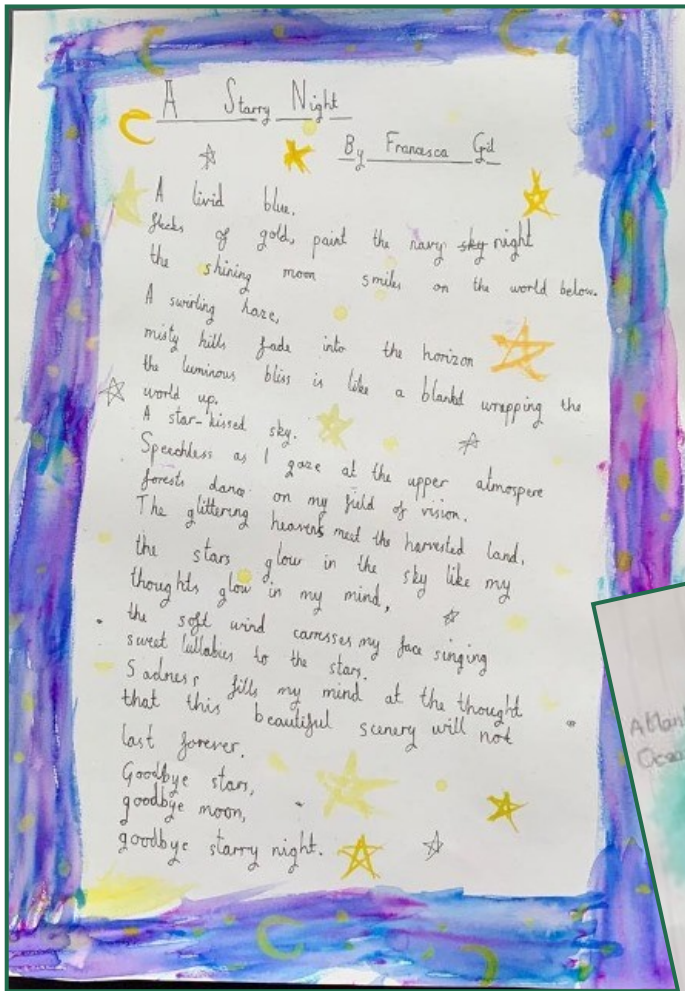 A Starry Night
By Francesca Gil
A livid blue.
flecks of gold, paint the navy sky night
the shining moon smiles on the world below.
A swirling haze,
misty hills fade into the horizon
the luminous bliss is like a blanket wrapping the
world up.
A star-kissed sky.
Speechless as I gaze at the upper atmospere
forests dance on my field of vision.
The glittering heavens meet the harvested land,
the stars glow in the sky like my
thoughts glow in my mind,
the soft wind carresses my face singing
sweet lullabies to the stars.
Sadness fills my mind at the thought
that this beautiful scenery will not
last forever.
Goodbye stars,
goodbye moon,
goodbye starry night.